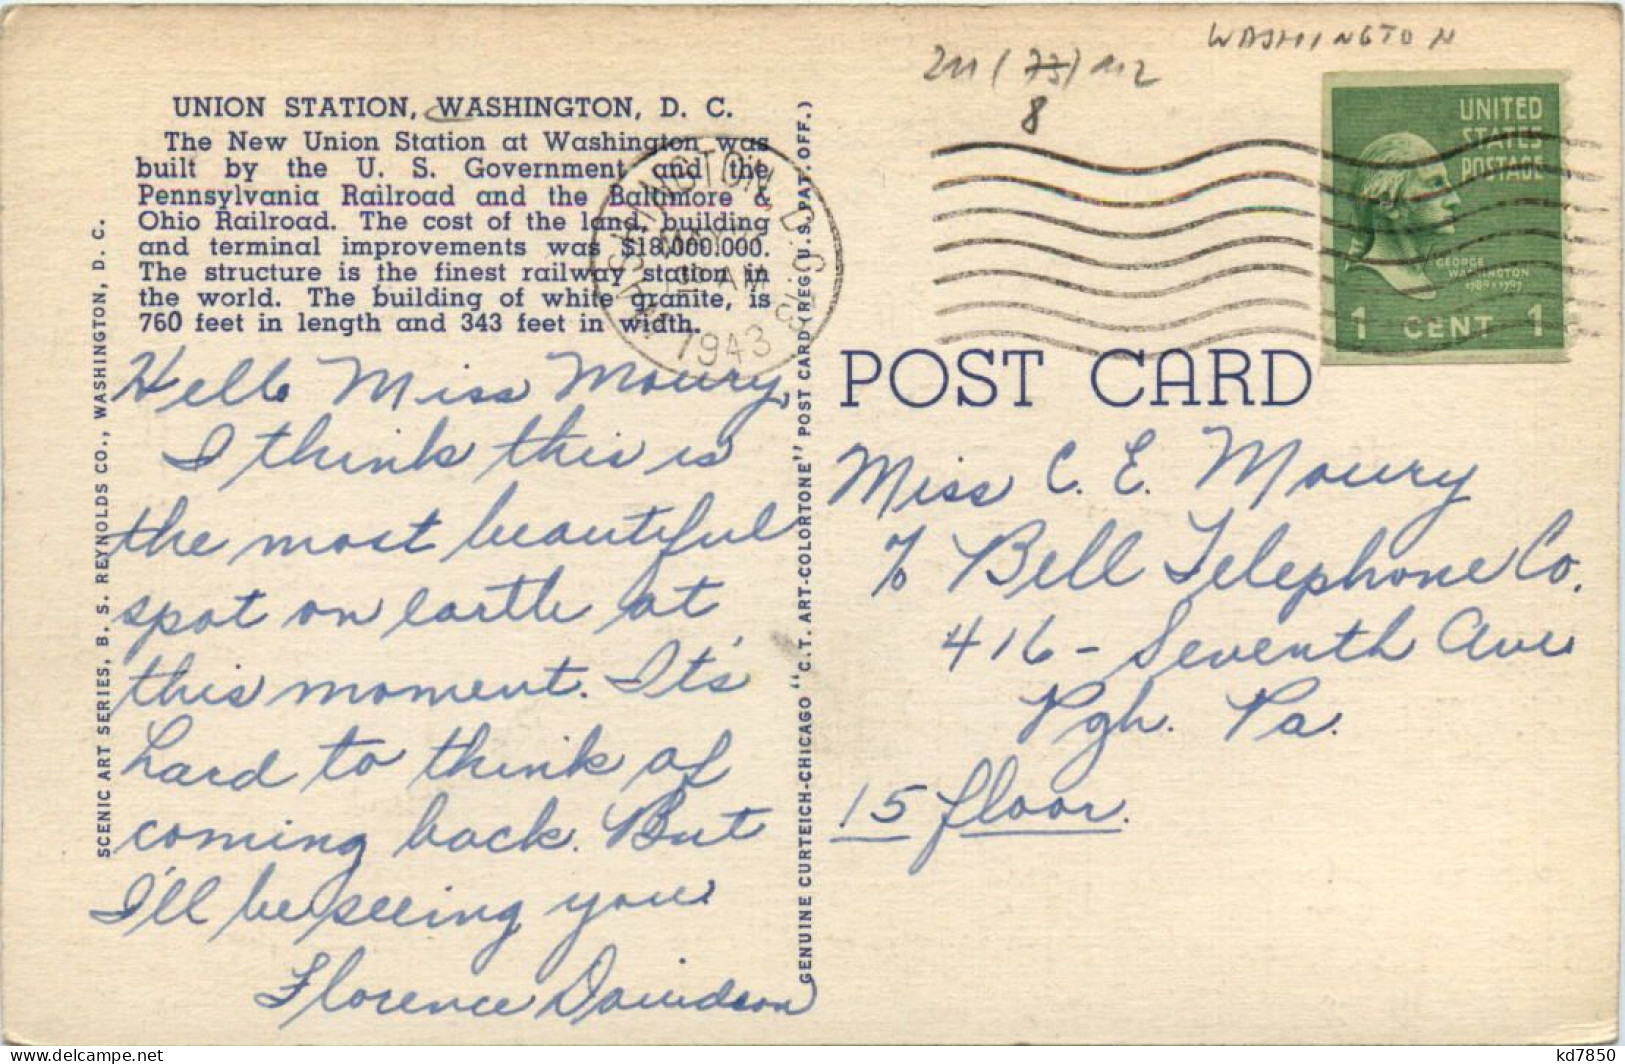 WASHINGTON
211 (73) 112
8
UNION STATION, WASHINGTON, D. C.
The New Union Station at Washington was
built by the U. S. Government and the
Pennsylvania Railroad and the Baltimore &
Ohio Railroad. The cost of the land, building
and terminal improvements was $18,000.000.
The structure is the finest railway station in
the world. The building of white granite, is
760 feet in length and 343 feet in width.
WASHINGTON, D.C.
AM
1943
UNITED
STATES
POSTAGE
GEORGE
WASHINGTON
1789-1797
1 CENT 1
POST CARD
Hello Miss Moury,
I think this is
the most beautiful
spot on earth at
this moment. It's
hard to think of
coming back. But
I'll be seeing you
Florence Davidson
Miss C. E. Moury
% Bell Telephone Co.
416 - Seventh Ave
Pgh. Pa.
15 floor.
SCENIC ART SERIES, B. S. REYNOLDS CO., WASHINGTON, D. C.
GENUINE CURTEICH-CHICAGO "C.T. ART-COLORTONE" POST CARD (REG. U.S. PAT. OFF.)
kd7850